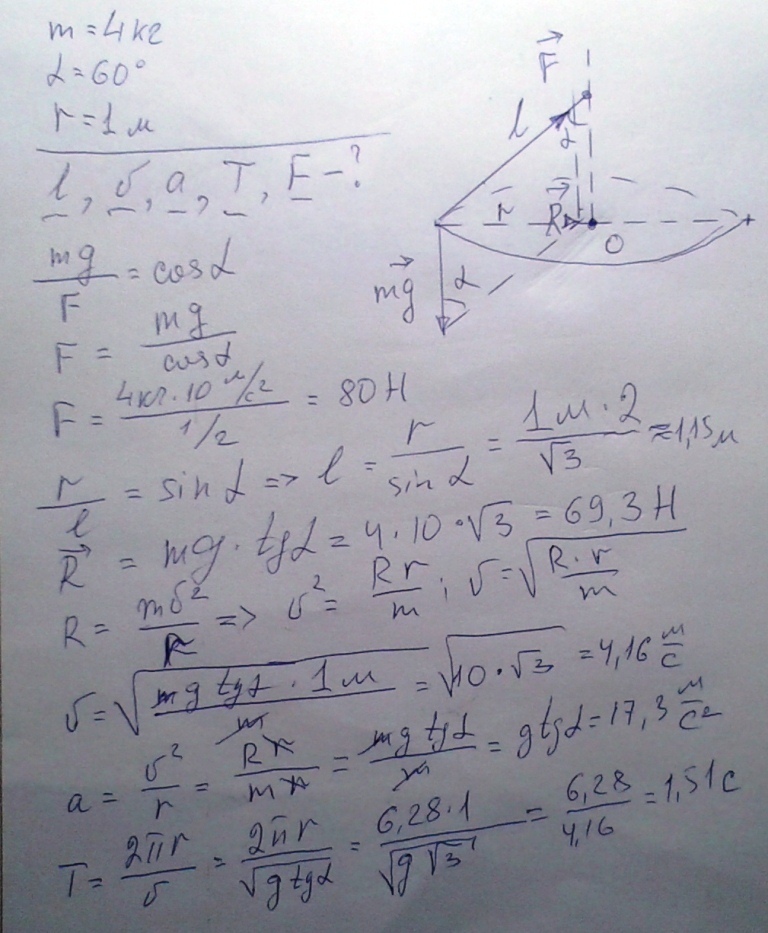 m = 4кг
α = 60°
r = 1 м
l, υ, a, T, F - ?
F⃗
l
α
r
R⃗
O
mg⃗
α
mg/F = cosα
F = mg/cosα
F = 4кг·10 м/с²/1/2 = 80 Н
r/l = sinα => l = r/sinα = 1м·2/√3 ≈ 1,15м
R⃗ = mg·tgα = 4·10·√3 = 69,3 Н
R = mυ²/r => υ² = Rr/m; υ = √(R·r/m)
υ = √(mg tgα · 1м/m) = √(10·√3) = 4,16 м/с
a = υ²/r = Rr/mr = mg tgα/m = g tgα = 17,3 м/с²
T = 2πr/υ = 2πr/√(g tgα) = 6,28·1/√(g√3) = 6,28/4,16 = 1,51с